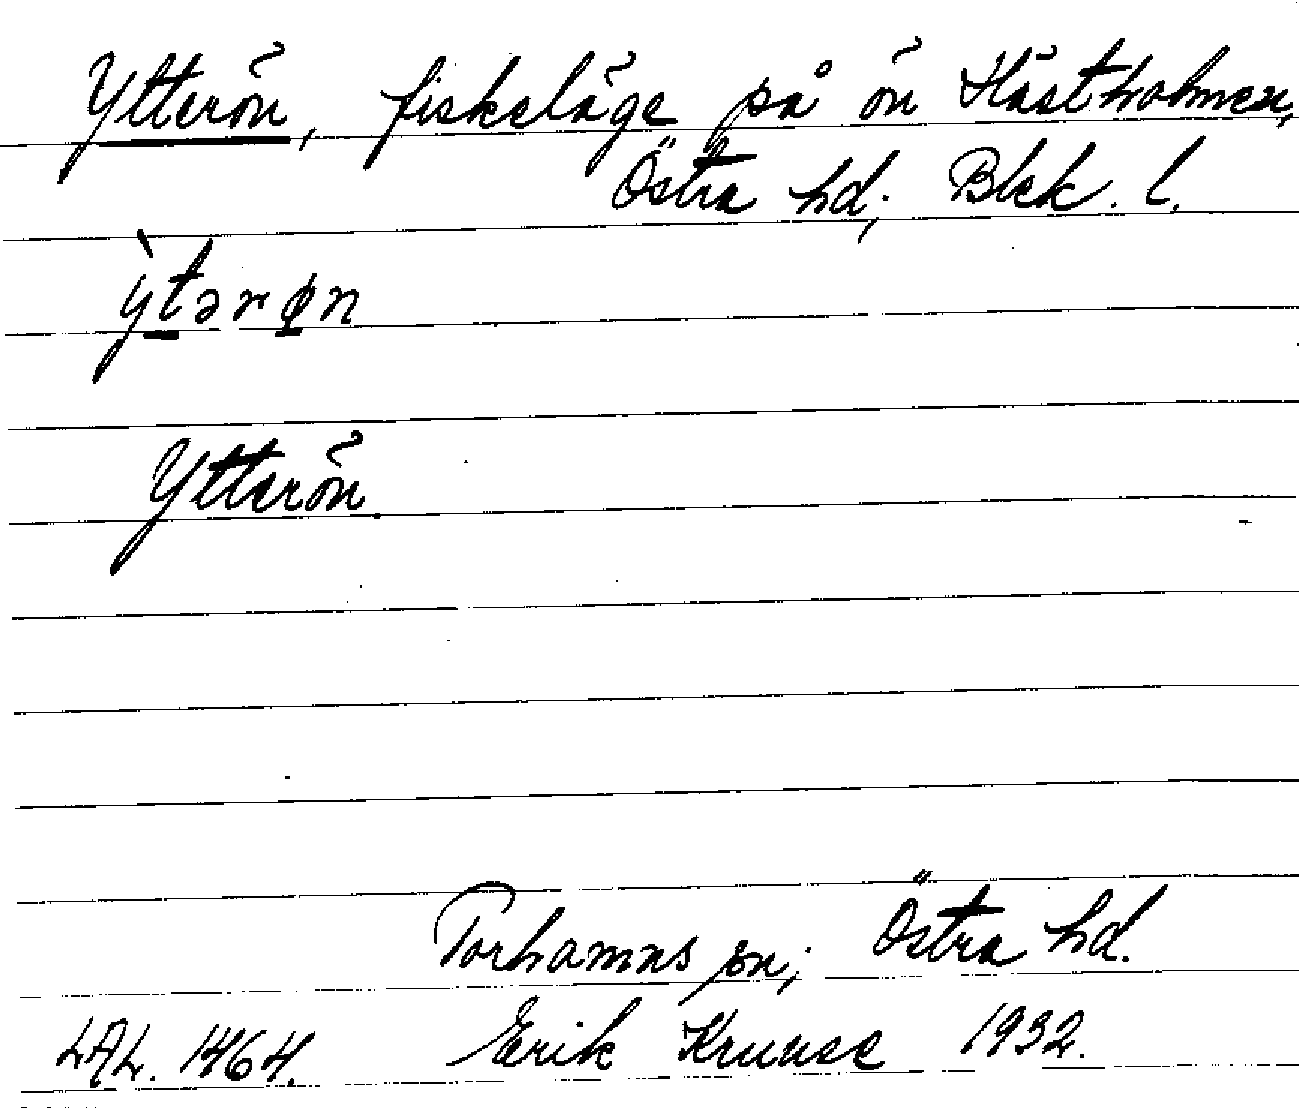 Ytterön, fiskeläge på ön Hästholmen,
Östra hd, Blek. l.
ỳtərøn
Ytterön.
Torhamns sn; Östra hd.
LAL. 1464. Erik Kruuse 1932.